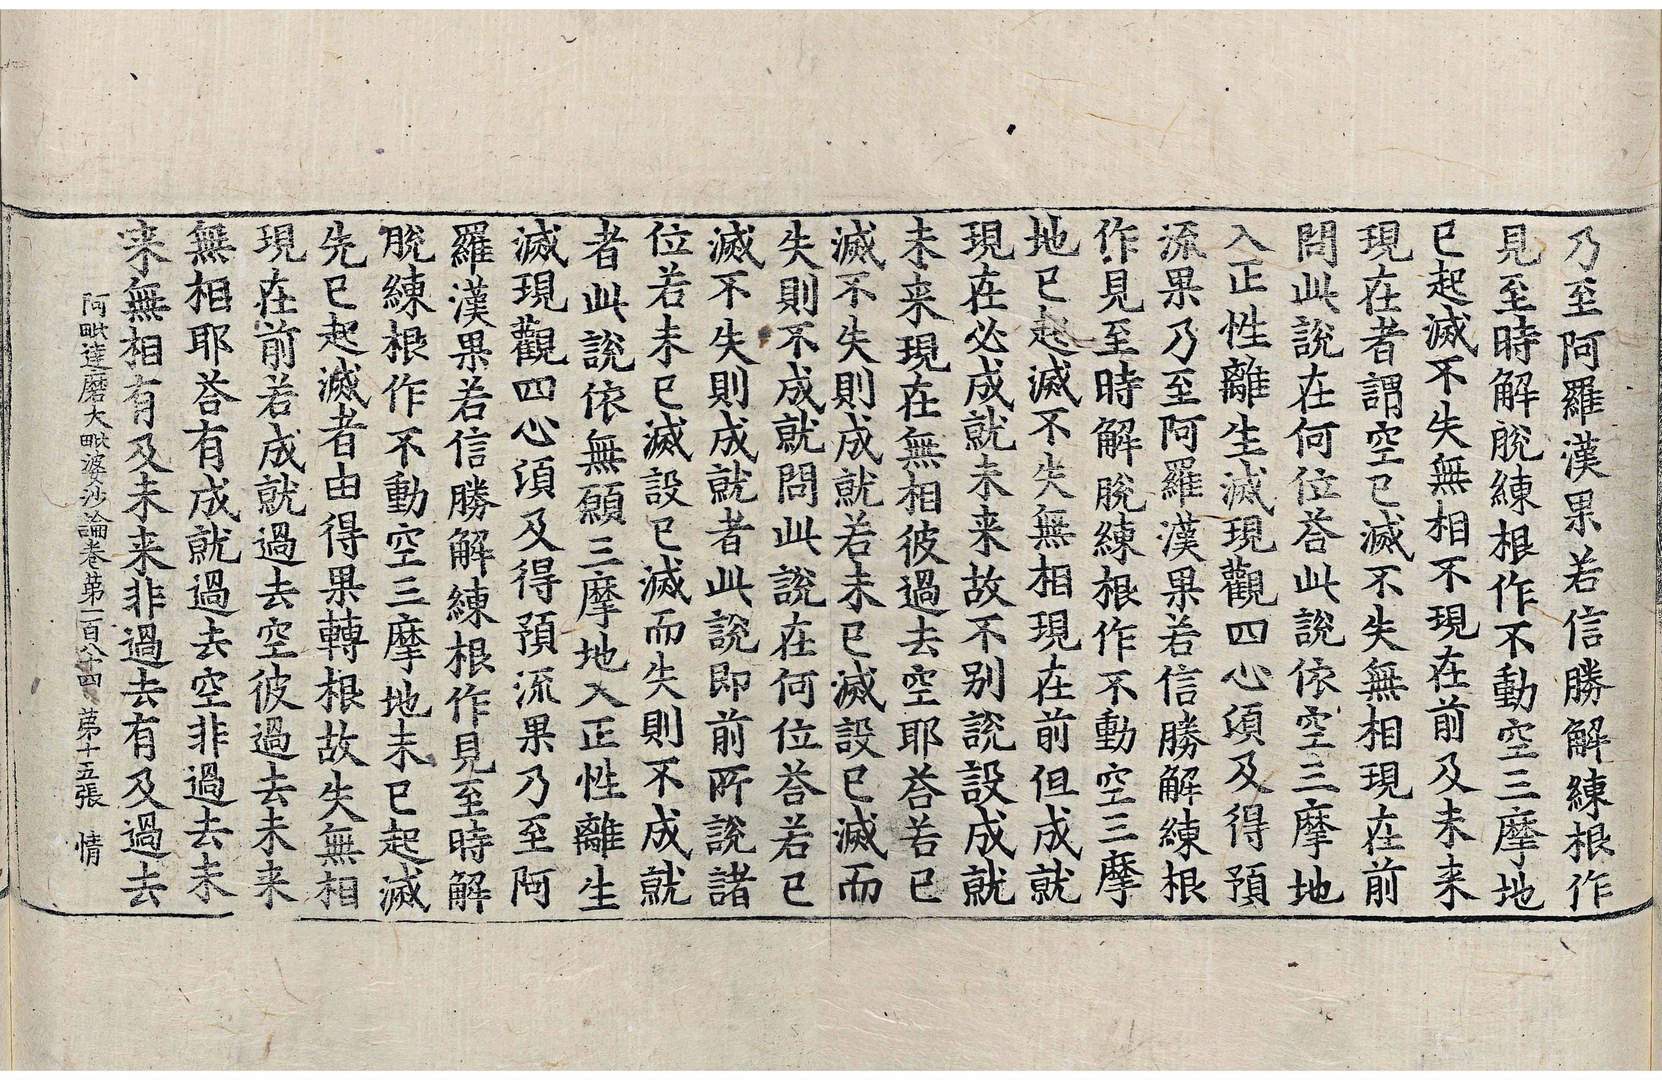 乃至阿羅漢果若信勝解練根作
見至時解脫練根作不動空三摩地
已起滅不失無相不現在前及未来
現在者謂空已滅不失無相現在前
問此說在何位荅此說依空三摩地
入正性離生滅現觀四心湏及得預
流果乃至阿羅漢果若信勝解練根
作見至時解脫練根作不動空三摩
地已起滅不失無相現在前但成就
現在必成就未来故不別說設成就
未来現在無相彼過去空耶荅若已
滅不失則成就若未已滅設已滅而
失則不成就問此說在何位荅若已
滅不失則成就者此說即前所說諸
位若未已滅設已滅而失則不成就
者此說依無願三摩地入正性離生
滅現觀四心湏及得預流果乃至阿
羅漢果若信勝解練根作見至時解
脫練根作不動空三摩地未已起滅
先已起滅者由得果轉根故失無相
現在前若成就過去空彼過去未来
無相耶荅有成就過去空非過去未
来無相有及未来非過去有及過去
阿毗達磨大毗婆沙論卷第一百八十四 苐十五張 情